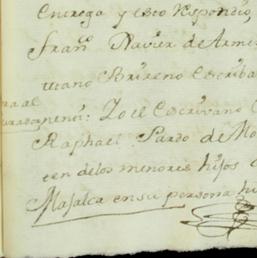 entrega y esto respondio,
Fran.co Xavier de Arme
utano Brireno Escriba
ra al
penu.: Yo el Escrivano
Raphael Pardo de Mo
ten delos menores hijos
Majalca en su persona hi